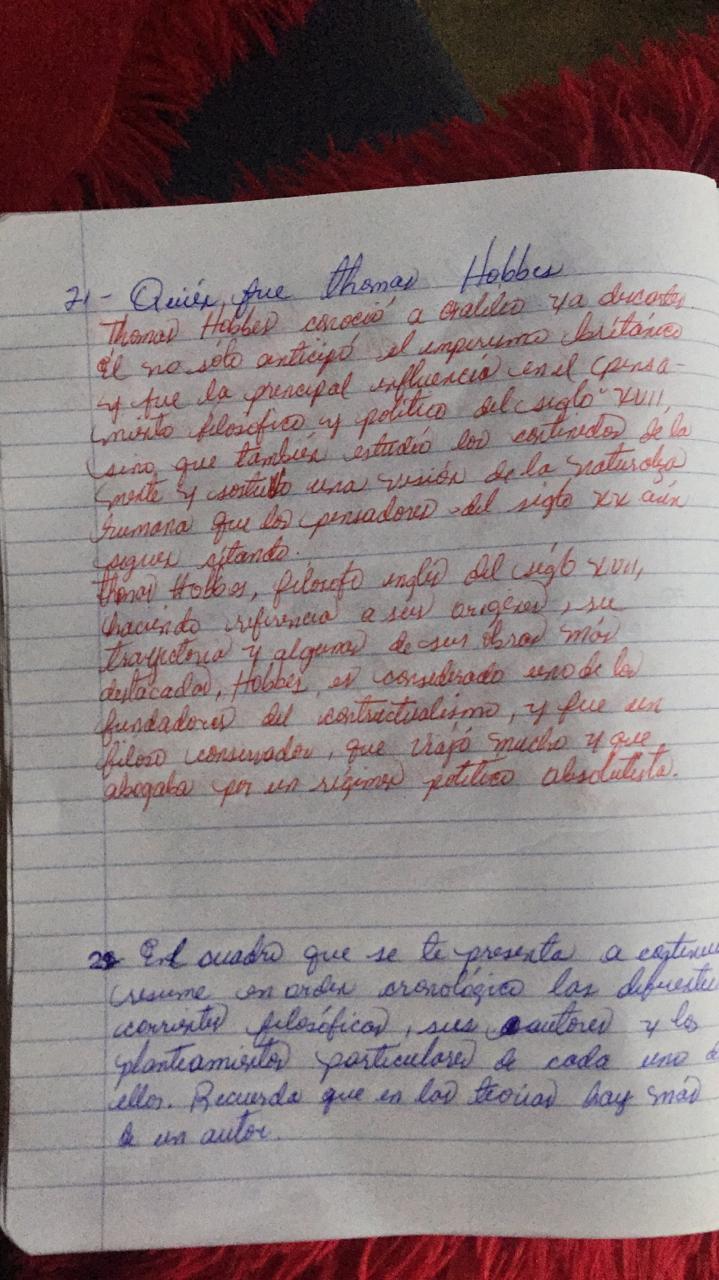 21- Quién fue Thomas Hobbes
Thomas Hobbes conoció a Galileo y a descartes.
Él no sólo anticipó el imperismo británico
y fue la principal influencia en el pensa-
miento filosófico y político del siglo XVII
sino que también estudió los contenidos de la
mente y sostuvo una visión de la naturaleza
humana que los pensadores del siglo XX aún
siguen sitando.
Thomas Hobbes, filósofo inglés del siglo XVII,
haciendo referencia a sus orígenes, su
trayectoria y algunas de sus obras más
destacadas, Hobbes, es considerado uno de los
fundadores del contractualismo, y fue un
filoso conservador, que viajó mucho y que
abogaba por un régimen político absolutista.
22 En el cuadro que se te presenta a continu
resume en orden cronológico las diferente
corrientes filosóficas, sus autores y los
planteamientos particulares de cada uno d
ellos. Recuerda que en las teorías hay más
de un autor.